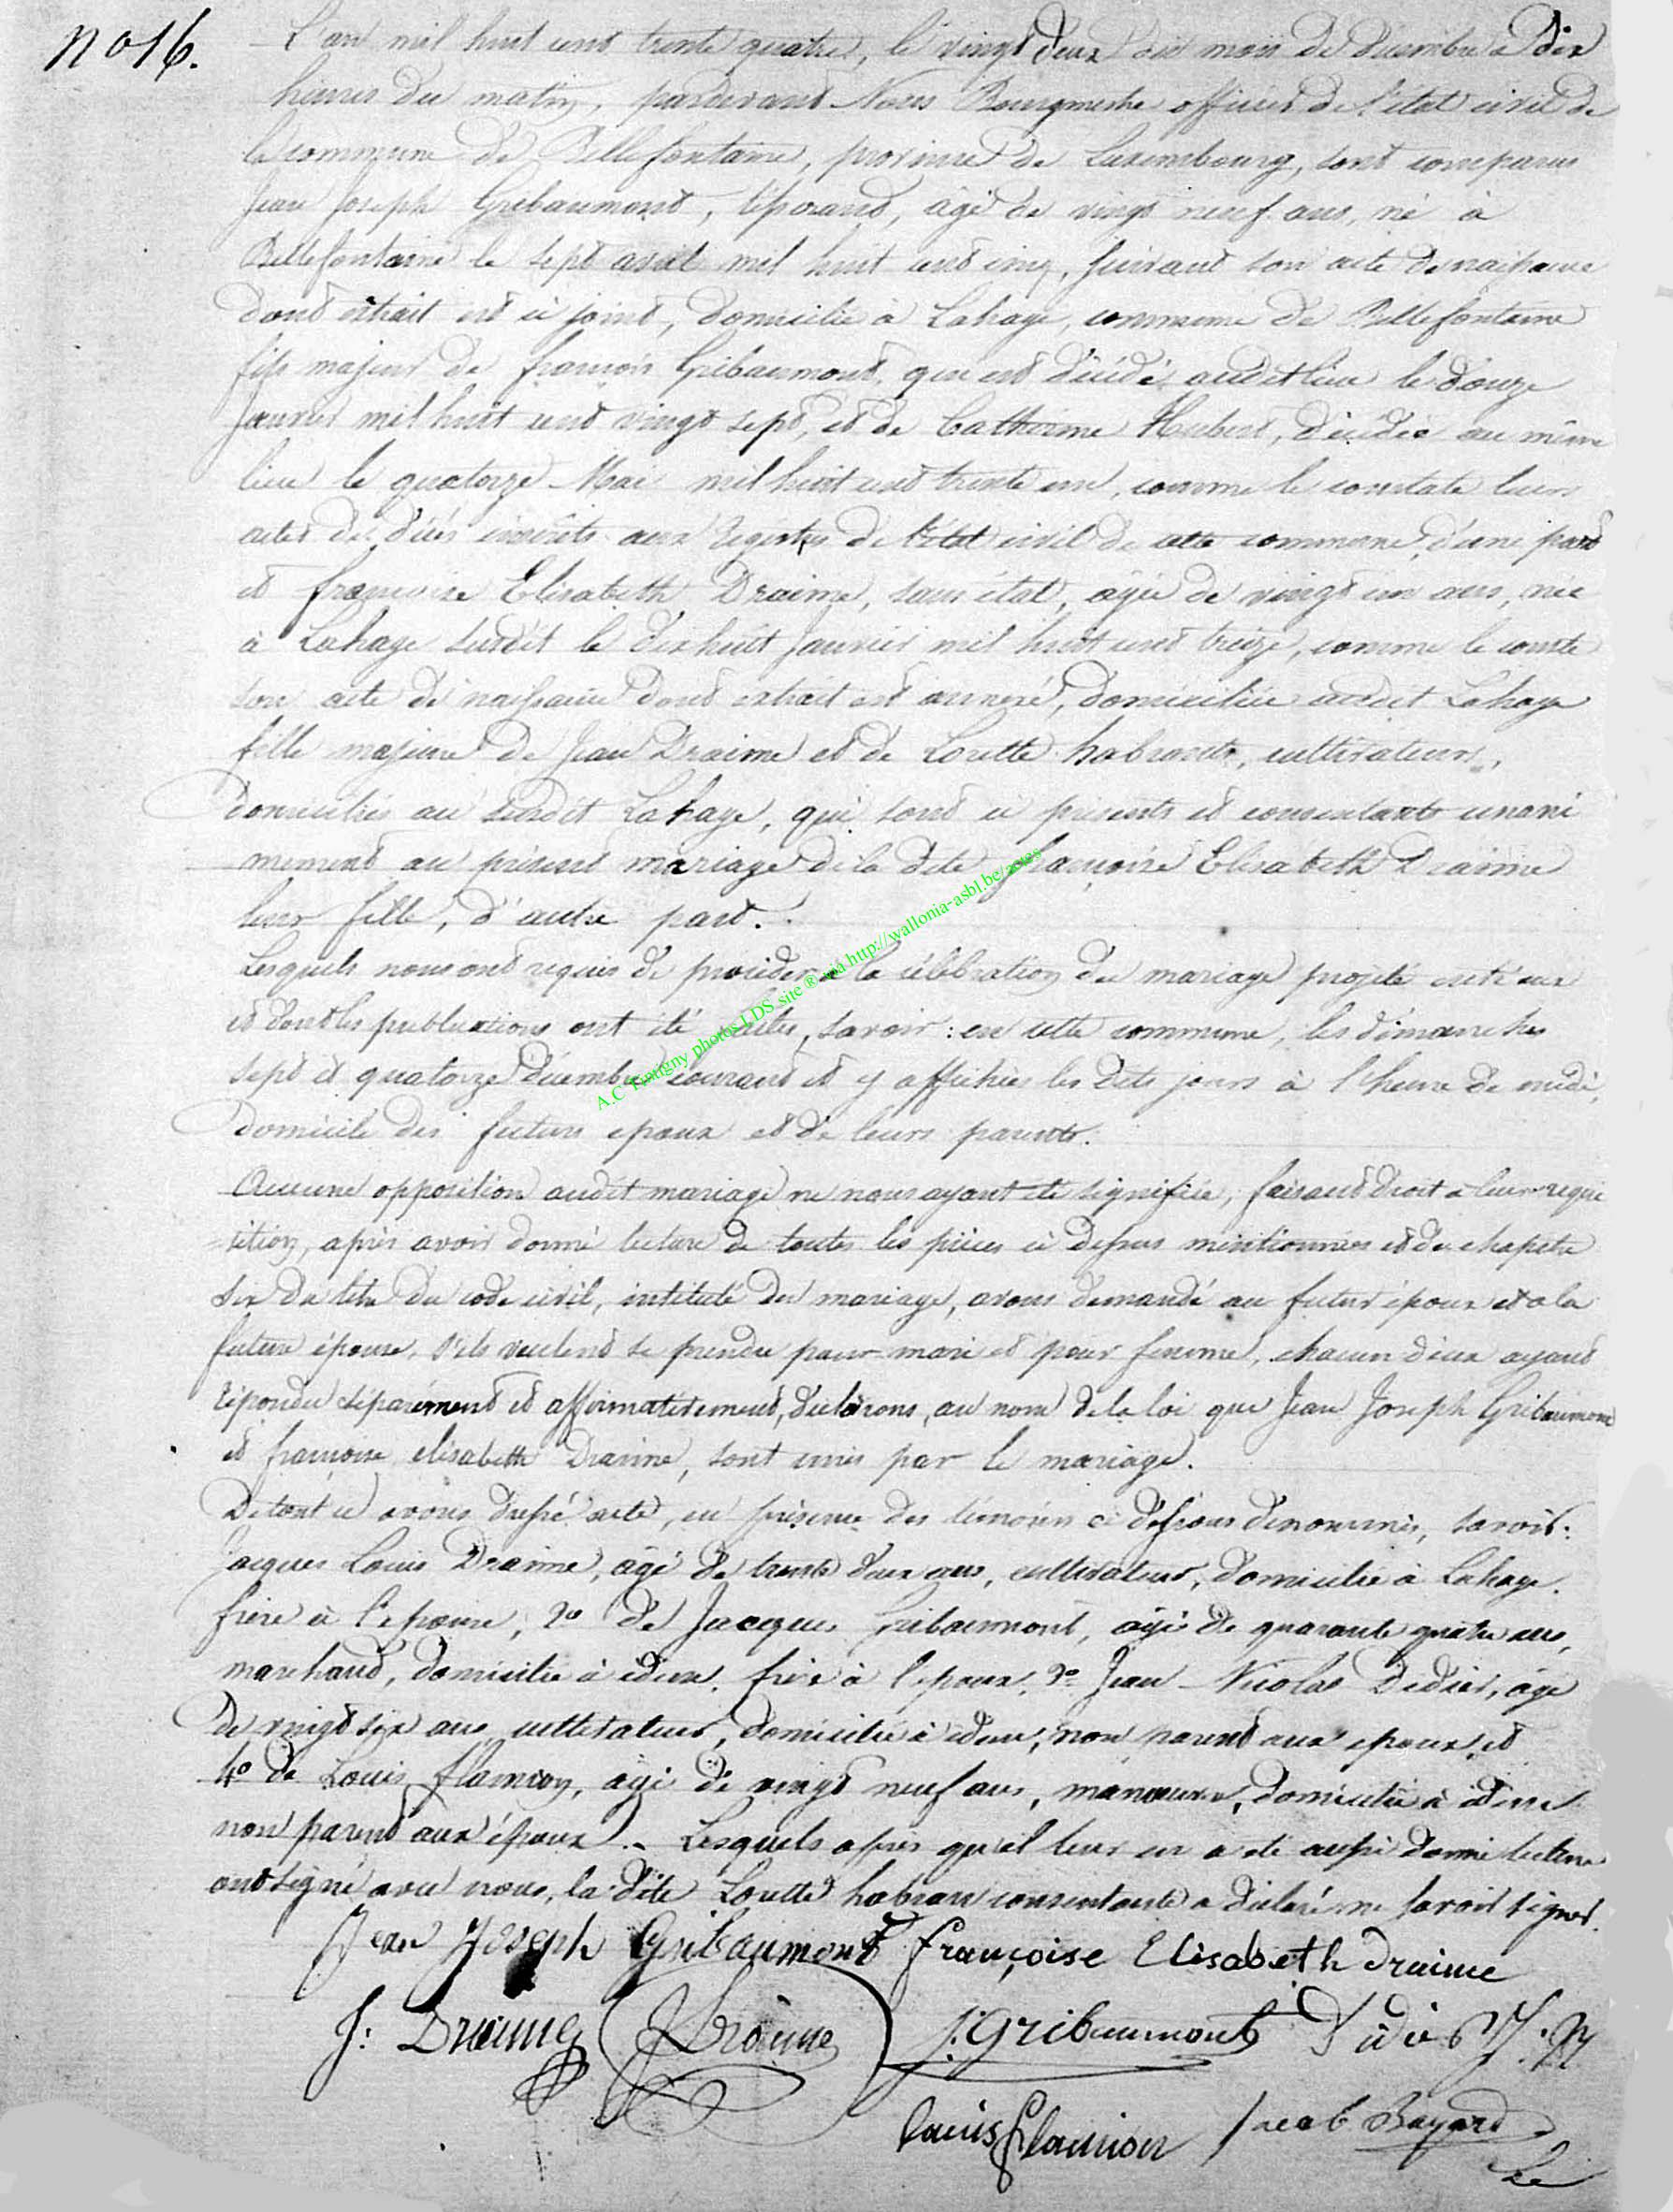 no 16.
L'an mil huit cent trente quatre, le vingt deux du mois de Décembre à dix
heures du matin, pardevant Nous Bourgmestre officier de l'état civil de
la commune de Bellefontaine, province de Luxembourg, sont comparus
Jean Joseph Gribaumont, âgé de vingt neuf ans, né à
Bellefontaine le sept avril mil huit cent cinq, suivant son acte de naissance
dont extrait est ci joint, domicilié à Lahage, commune de Bellefontaine
fils majeur de françois Gribaumont, qui est décédé audit lieu le douze
Janvier mil huit cent vingt sept, et de Catherine Hubert, décédée au même
lieu le quatorze Mai mil huit cent trente un, comme le constate leurs
actes de décès inscrits aux registres de l'état civil de cette commune, d'une part
et françoise Elisabeth Draime, sans état, agée de vingt un ans, née
à Lahage susdit le dix huit Janvier mil huit cent treize, comme le conste
son acte de naissance dont extrait est annexé, domiciliée audit Lahage
fille majeure de Jean Draime et de Lorette habran, cultivateurs,
domiciliés au susdit Lahage, qui sont ci présents et consentants unani
mement au présent mariage de la dite françoise Elisabeth Draime
leur fille, d'autre part.
Lesquels nous ont requis de procéder à la célébration du mariage projeté entr'eux
et dont les publications ont été faites, savoir : en cette commune, les dimanches
sept et quatorze décembre courant et y affichées les dits jours à l'heure de midi,
domicile des futurs epoux et de leurs parents.
Aucune opposition audit mariage ne nous ayant été signifiée, faisant droit à leur requi
sition, après avoir donné lecture de toutes les pièces ci dessus mentionnées et du chapitre
six du titre du code civil, intitulé du mariage, avons demandé au futur époux et à la
future épouse, s'ils veulent se prendre pour mari et pour femme, chacun d'eux ayant
répondu séparément et affirmativement, déclarons, au nom de la loi que Jean Joseph Gribaumont
et françoise elisabeth Draime, sont unis par le mariage.
De tout ce avons dressé acte, en présence des témoins ci dessous dénommés, savoir :
Jacques Louis Draime, âgé de trente deux ans, cultivateur, domicilié à Lahage.
frère à l'epouse, 2o de Jacques Gribaumont, âgé de quarante quatre ans,
marchand, domicilié à idem, frère à l'epoux, 3o Jean Nicolas Didier, âgé
de vingt six ans, cultivateur, domicilié à idem, non parent aux epoux, et
4o de Louis flamion, âgé de vingt neuf ans, manœuvre, domicilié à idem
non parent aux époux. - Lesquels après qu'il leur en a été aussi donné lecture
ont signé avec nous, la dite Lorette habran consentante a déclaré ne savoir signer.
Jean Joseph Gribaumont françoise Elisabeth draime
J: Draime Draime J: Gribaumont Didier J. N
Louis flamion Jacob Bayard
A.C Tintigny photos LDS site ® via http://wallonia-asbl.be/actes